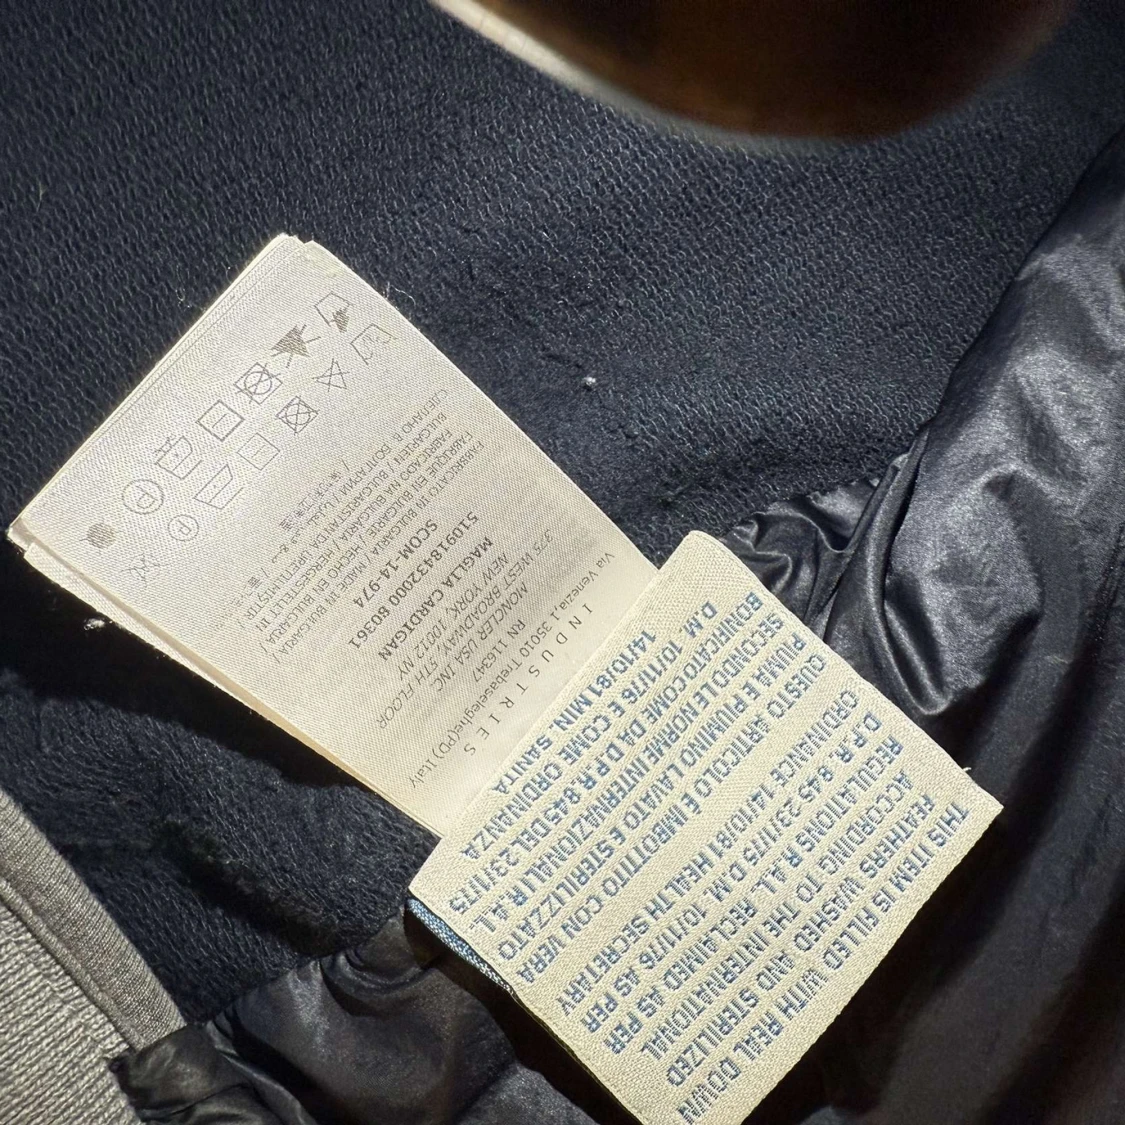 I N D U S T R I E S
Via Venezia,1 35010 Trebaseleghe(PD) Italy
RN 116347
MONCLER USA INC
375 WEST BROADWAY, 5TH FLOOR
NEW YORK, 10012 NY
MAGLIA CARDIGAN
S10918432000 80361
SCOM-14-974
FABBRICATO IN BULGARIA / MADE IN BULGARIA
FABRIQUE EN BULGARIE / HERGESTELLT IN
BULGARIEN /
THIS ITEM IS FILLED WITH REAL DOWN
FEATHERS WASHED AND STERILIZED
ACCORDING TO THE INTERNATIONAL
REGULATIONS R.A.L. RECLAIMED AS PER
D.P.R. 845-23/1/75 D.M. 10/11/76 AS PER
ORDINANCE 14/10/81 HEALTH SECRETARY
QUESTO ARTICOLO É IMBOTTITO CON VERA
PIUMA E PIUMINO LAVATO E STERILIZZATO
SECONDO LE NORME INTERNAZIONALI R.A.L.
BONIFICATO COME DA D.P.R. 845 DEL 23/1/75
D.M. 10/11/76 E COME ORDINANZA
14/10/81 MIN. SANITÀ